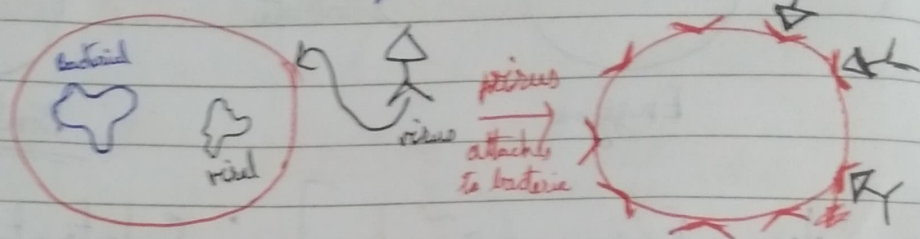 Bacterial
viral
virus
virus
attaches
to bacteria